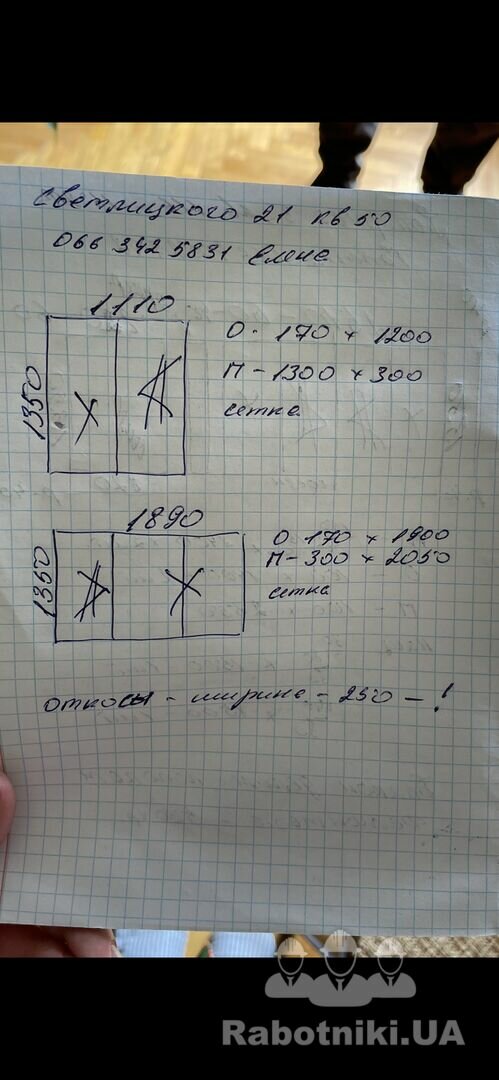 Светлицкого 21 кв 50
066 342 5831 Елена
1110
О - 170 х 1200
1350
П - 1300 х 300
сетка
1890
О 170 х 1900
1350
П - 300 х 2050
сетка
откосы - ширина - 250 - !
Rabotniki.UA